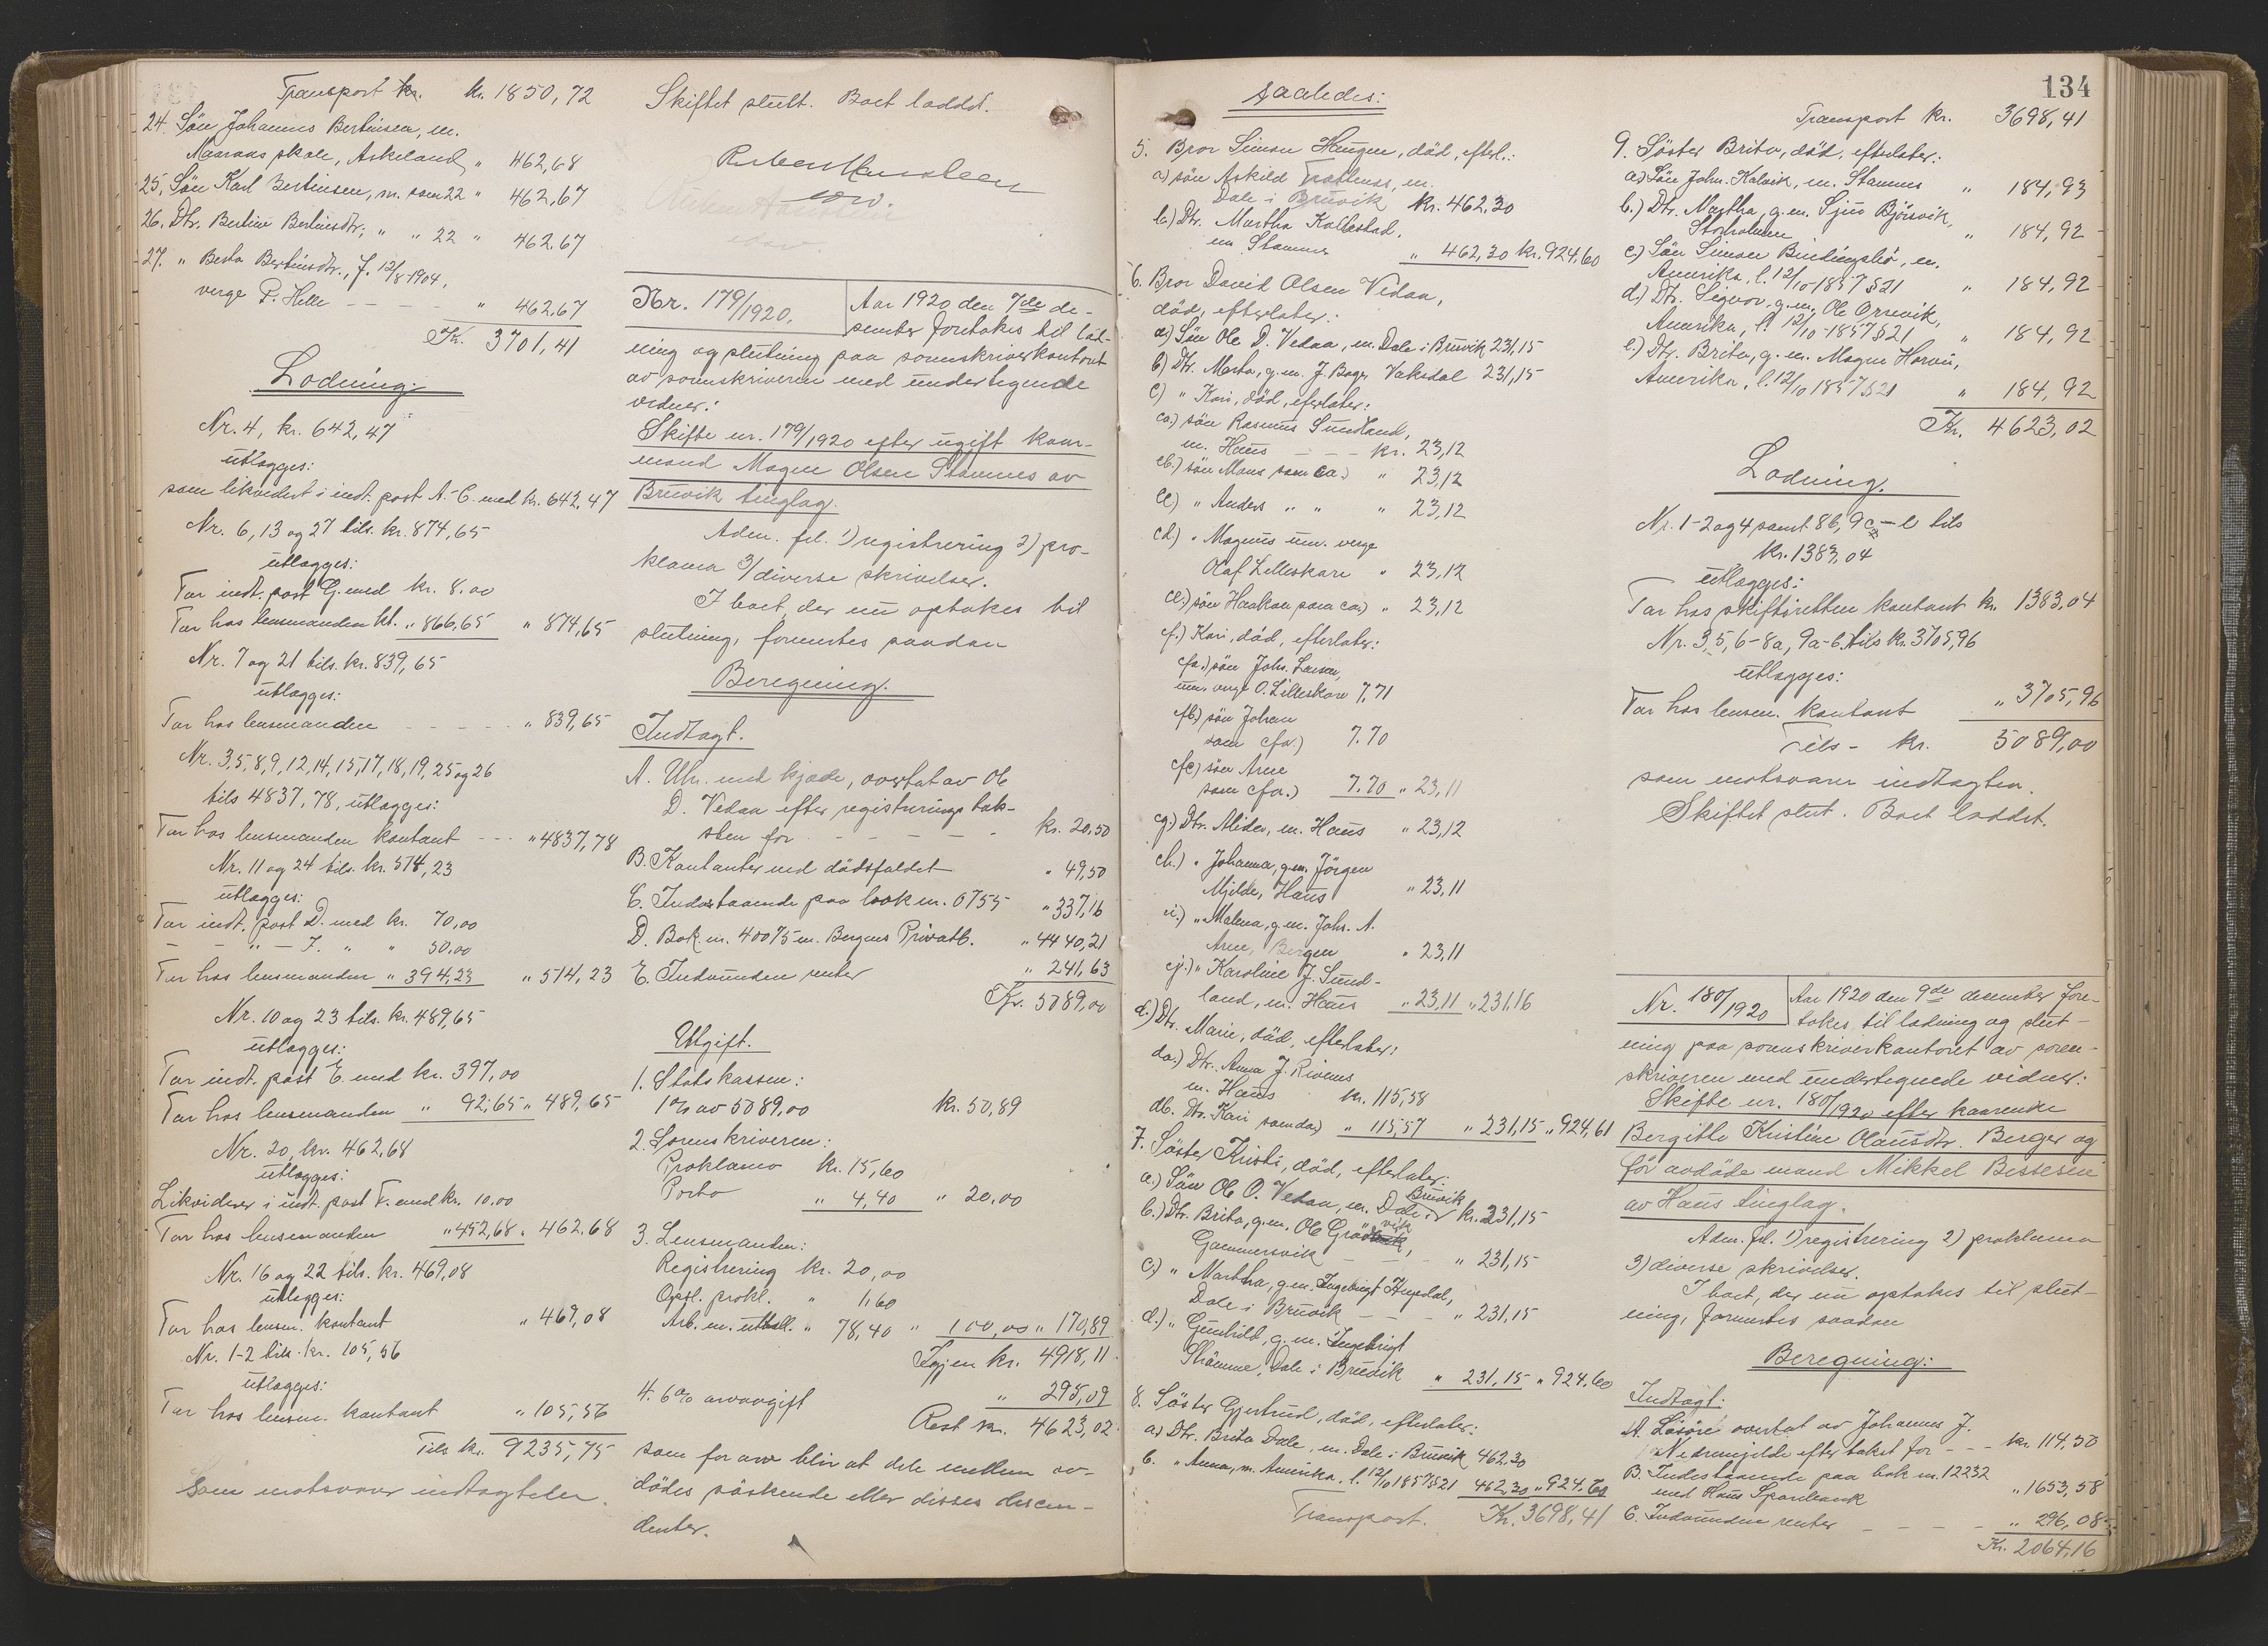 Transport kr. kr. 1850,72
24. Sön Johannes Bertinsen, m.
skole, Askeland, " 462,68
25. Sön Karl Bertinsen, m. som 22 " 462,67
26. Dtr. Bertine Bertinsdtr; " " 22 " 462,67
27. " Berta Bertinsdtr., f. 12/8-1904,
verge P. Helle - - - - " 462,67
Kr. 3701,41
Lodning:
Nr. 4, kr. 642,47
utlægges:
som likvidert i indt. post A.-C. med kr. 642,47
Nr. 6, 13 og 27 tils. kr. 874,65
utlægges:
Tar indt. post G. med kr. 8.00
Tar hos lensmanden kt. " 866,65 " 874,65
Nr. 7 og 21 tils. kr. 839,65
utlægges:
Tar hos lensmanden - - - - " 839,65
Nr. 3, 5, 8, 9, 12, 14, 15, 17, 18, 19, 25 og 26
tils 4837,78, utlægges:
Tar hos lensmanden kontant - - - " 4837,78
Nr. 11 og 24 tils. kr. 514,23
utlægges:
Tar indt. post D. med kr. 70,00
- - " - F. " " 50,00
Tar hos lensmanden " 394,23 " 514,23
Nr. 10 og 23 tils. kr. 489,65
utlægges:
Tar indt. post E. med kr. 397,00
Tar hos lensmanden " 92,65 " 489,65
Nr. 20, kr. 462,68
utlægges:
Likviderer i indt. post F. med kr. 10,00
Tar hos lensmanden " 452,68 " 462,68
Nr. 16 og 22 tils. kr. 469,08
utlægges:
Tar hos lensm. kontant " 469,08
Nr. 1-2 tils. kr. 105,56
utlægges:
Tar hos lensm. kontant " 105,56
Tils kr. 9235,75
Som motsvarer indtægten.
Skiftet slutt. Boet loddet.
Nr. 179/1920.
Aar 1920 den 7de de-
sember foretokes til lod-
ning og slutning paa sorenskriverkontoret
av sorenskriveren med undertegnede
vidner:
Skifte nr. 179/1920 efter ugift kaar-
mand Magne Olsen Stamnes av
Bruvik tinglag.
Adm. fol. 1) registrering 2) pro-
klama 3/ diverse skrivelser.
I boet, der nu optokes til
slutning, formentes saadan
Beregning.
Indtægt.
A. Uhr med kjæde, overtat av Ole
D. Vedaa efter registreringstak-
sten for - - - - - kr. 20,50
B. Kontanter ved dödsfaldet " 49,50
C. Indestaaende paa bok nr. 6755 " 337,16
D. Bok nr. 40075 m. Bergens Privatb. " 4440,21
E. Indvundne renter " 241,63
Kr. 5089,00
Utgift.
1. Statskassen:
1% av 5089,00 kr. 50,89
2. Sorenskriveren:
Proklama kr. 15,60
Porto " 4,40 " 20,00
3. Lensmanden:
Registrering kr. 20,00
Opsl. prokl. " 1,60
Arb. m. utbetl. " 78,40 " 100,00 " 170,89
Igjen kr. 4918,11
4. 6% arvavgift " 295,09
Rest kr. 4623,02
som for arv blir at dele mellem av-
dödes söskende eller disses descen-
denter.
134
saaledes:
5. Bror Simon Haugen, död, efterl.:
a) sön Askild Trættenes, m.
Dale i Bruvik kr. 462,30
b.) Dtr. Martha Kallestad,
m Stamnes " 462,30 kr. 924,60
6. Bror David Olsen Vedaa,
död, efterlater:
a) Sön Ole D. Vedaa, m. Dale i Bruvik 231,15
b) Dtr. Marta, g.m. J. Boge, Vaksdal 231,15
c) " Kari, död, efterlater:
ca.) sön Rasmus Sundland,
m. Haus - - - kr. 23,12
cb.) sön Mons som ca.) " 23,12
cc.) " Anders " " " 23,12
cd.) " Magnus um. verge
Olaf Lilleskare " 23,12
ce.) sön Haakon som ca.) " 23,12
cf.) Kari, död, efterlater:
cfa.) sön Johs. Larsen,
um. verge O. Lilleskare 7,71
cfb.) sön Johan
som cfa.) 7.70
cfc) sön Arne
som cfa.) 7.70 " 23,11
cg.) Dtr. Alida, m. Haus " 23,12
ch.) " Johanna, g.m. Jörgen
Mjelde, Haus " 23,11
ci.) " Malena, g.m. Johs. A.
Arne, Bergen " 23,11
cj.) " Karoline J. Sund-
land, m. Haus " 23,11 " 231,16
d.) Dtr. Marie, död, efterlater:
da.) Dtr. Anna J. Rivenes
m. Haus kr. 115,58
db. Dtr. Kari som da) " 115,57 " 231,15 " 924,61
7. Söster Kristi, död, efterlater:
a.) Sön Ole O. Vedaa, m. Dale i Bruvik kr. 231,15
b.) Dtr. Brita, g.m. Ole Grövik,
Gammersvik - - - " 231,15
c.) " Martha, g.m. Ingebrigt Hugdal,
Dale i Bruvik - - - " 231,15
d.) " Gunhild, g.m. Ingebrigt
Skämme, Dale i Bruvik " 231,15 " 924,60
8. Söster Gjertrud, död, efterlater:
a) Dtr. Brita Dale, m. Dale i Bruvik 462.30
b. " Anna, m. Amerika. l. 12/10 1857 § 21 462,30 " 924,60
Transport. Kr. 3698,41
Transport kr. 3698,41
9. Söster Brita, död, efterlater:
a.) Sön Johs. Kalvik, m. Stamnes " 184,93
b.) Dtr. Martha, g.m. Sjur Björsvik,
Storholmen " 184,92
c.) Sön Simon , m.
Amerika, l. 12/10-1857 § 21 " 184,92
d.) Dtr. Signor, g.m. Ole Orrevik,
Amerika, l. 12/10-1857 § 21 " 184,92
e.) Dtr. Brita, g.m. Magne Horvei,
Amerika, l. 12/10 1857 § 21 " 184,92
Kr. 4623,02
Lodning.
Nr. 1-2 og 4 samt 8b, 9c - e tils
kr. 1383,04
utlægges:
Tar hos skifteretten kontant kr. 1383,04
Nr. 3, 5, 6-8a, 9a-b. tils kr. 3705,96
utlægges:
Tar hos lensm. kontant " 3705,96
Tils - kr. 5089,00
som motsvarer indtægten.
Skiftet slut. Boet loddet.
Nr. 180/1920
Aar 1920 den 9de desember fore-
tokes til lodning og slut-
ning paa sorenskriverkontoret av soren-
skriveren med undertegnede vidner:
Skifte nr. 180/1920 efter kaarenke
Bergitte Kristine Olausdtr. Berger og
för avdöde mand Mikkel Bessesen
av Haus tinglag.
Adm. fol. 1) registrering 2) proklama
3) diverse skrivelser.
I boet, der nu optokes til slut-
ning, formentes saadan
Beregning:
Indtægt:
A. Lösöre overtat av Johannes J.
Nedremjelde efter takst for - - - kr. 114,50
B. Indestaaende paa bok nr. 12232
med Haus Sparebank " 1653,58
C. Indvundne renter - - - - " 296,08
Kr. 2064,16